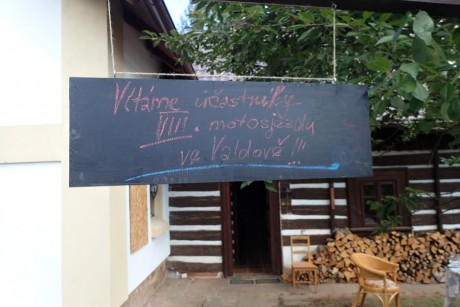 Vítáme účastníky
VIII. motosjezdu
ve Valdově!!!